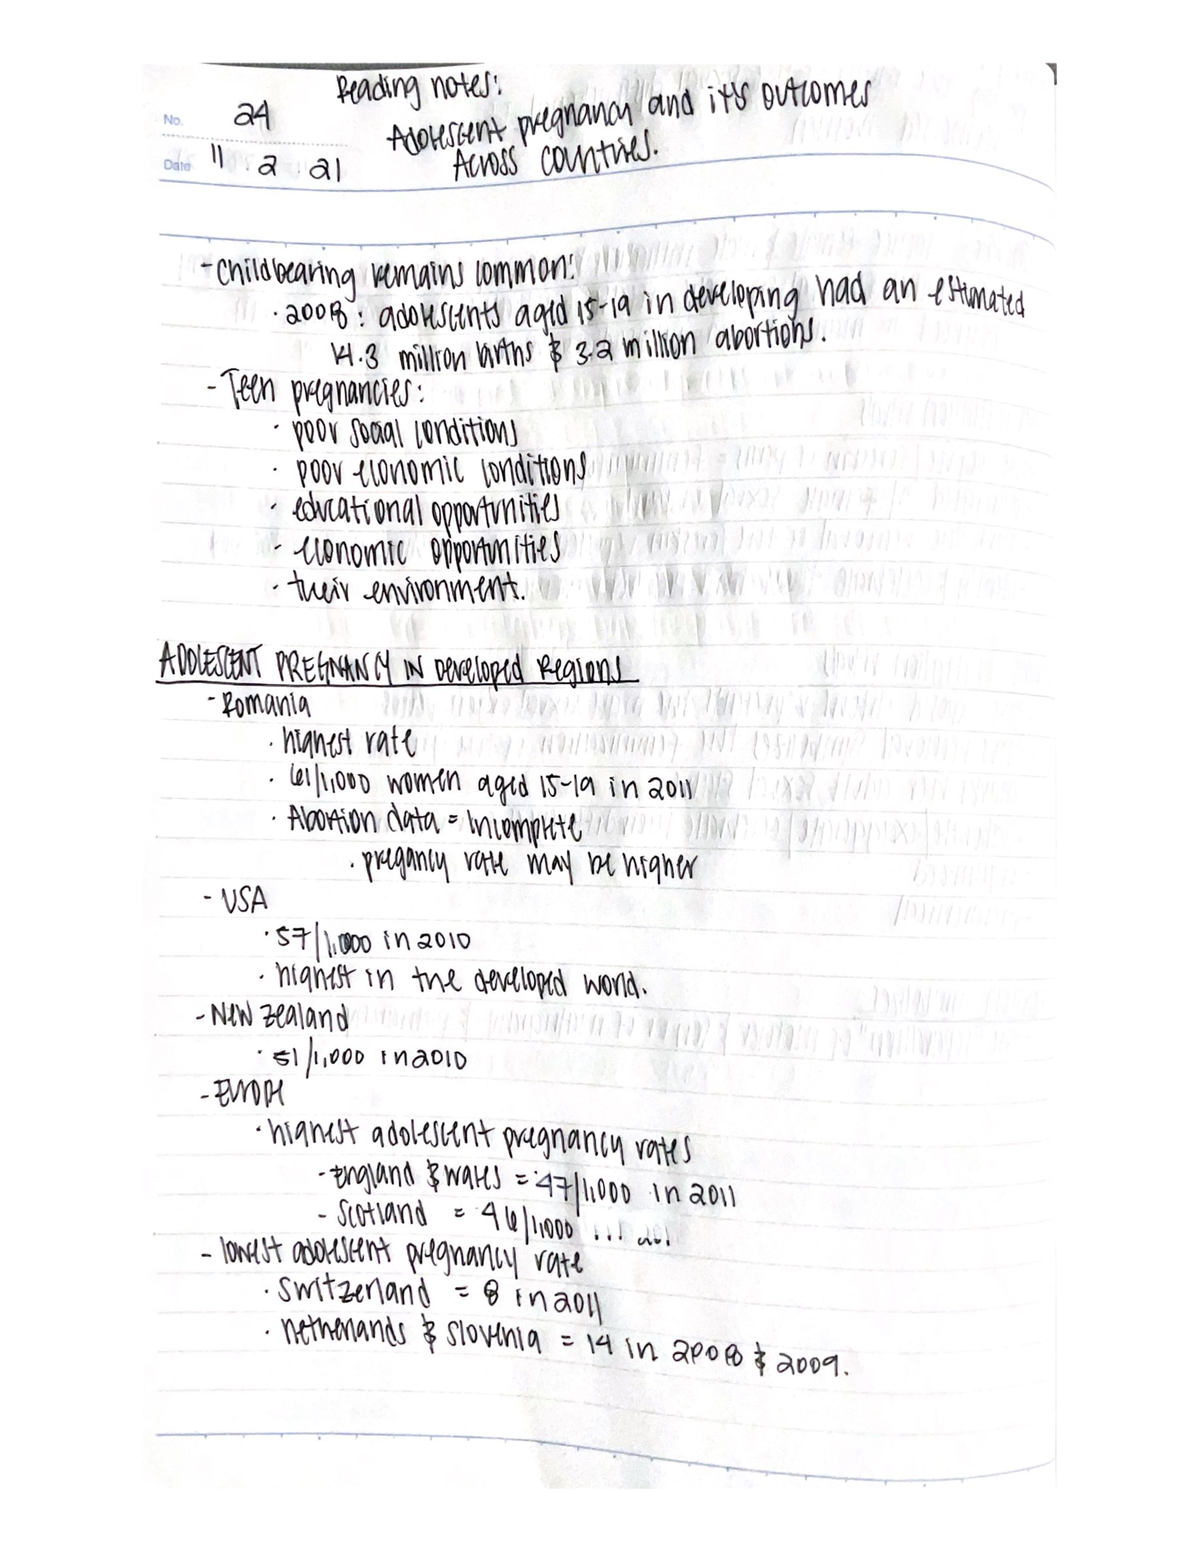 Reading notes:
No. 24
Adolescent pregnancy and it's outcomes
Date 11 . 2 . 21
Across countries.
- Childbearing remains common:
· 2008 : adolescents aged 15-19 in developing had an estimated
14.3 million births & 3.2 million abortions.
- Teen pregnancies:
· poor social conditions
· poor economic conditions
· educational opportunities
· economic opportunities
· their environment.
ADOLESCENT PREGNANCY IN Developed Regions
- Romania
· highest rate
· 61/1,000 women aged 15-19 in 2011
· Abortion data = incomplete
· pregancy rate may be higher
- USA
· 57/1,000 in 2010
· highest in the developed world.
- New Zealand
· 51/1,000 in 2010
- Europe
· highest adolescent pregnancy rates
- England & Wales = 47/1,000 in 2011
- Scotland = 46/1,000
- lowest adolescent pregnancy rate
· Switzerland = 8 in 2011
· netherlands & Slovenia = 14 in 2008 & 2009.